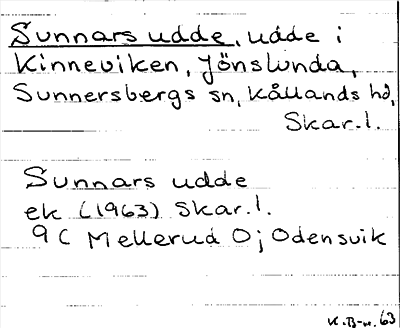 Sunnars udde, udde i
Kinneviken, Jönslunda,
Sunnersbergs sn, Kållands hd,
Skar.l.
Sunnars udde
ek (1963) Skar.l.
9C Mellerud O; Odensvik
K.B-n. 63